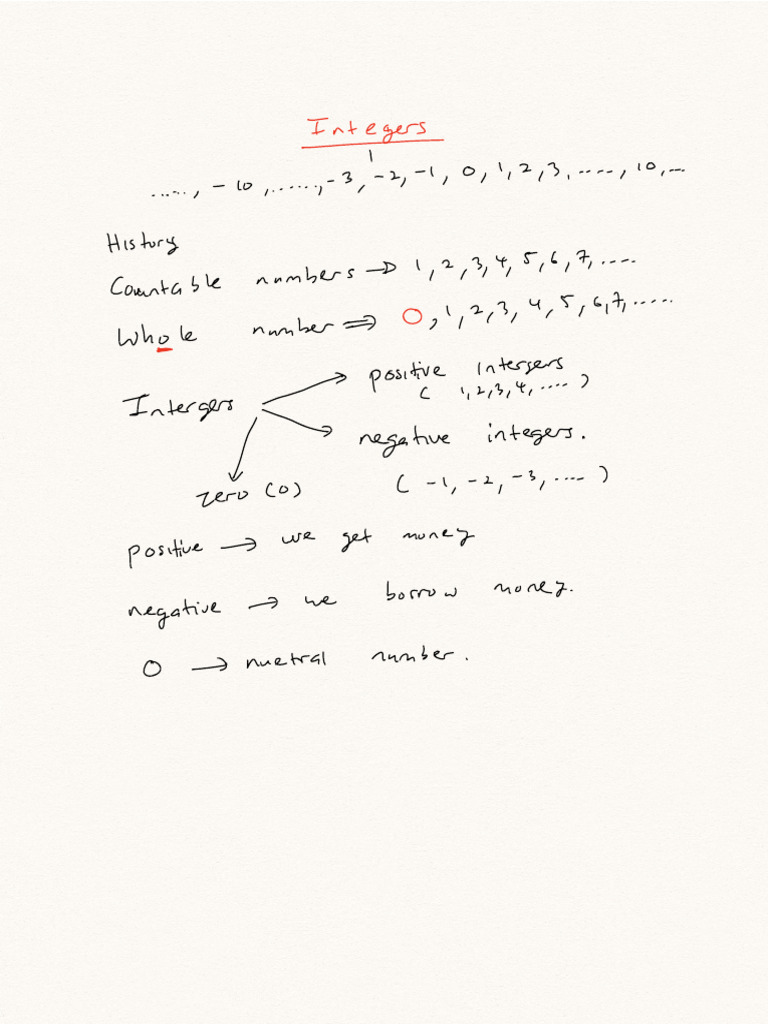 Integers
....., -10, ......, -3, -2, -1, 0, 1, 2, 3, ...., 10, ...
History
Countable numbers → 1, 2, 3, 4, 5, 6, 7, ....
Whole number ⇒ 0, 1, 2, 3, 4, 5, 6, 7, .....
positive intergers
( 1, 2, 3, 4, .... )
Intergers
negative integers.
zero (0) ( -1, -2, -3, .... )
positive → we get money
negative → we borrow money.
0 → nuetral number.